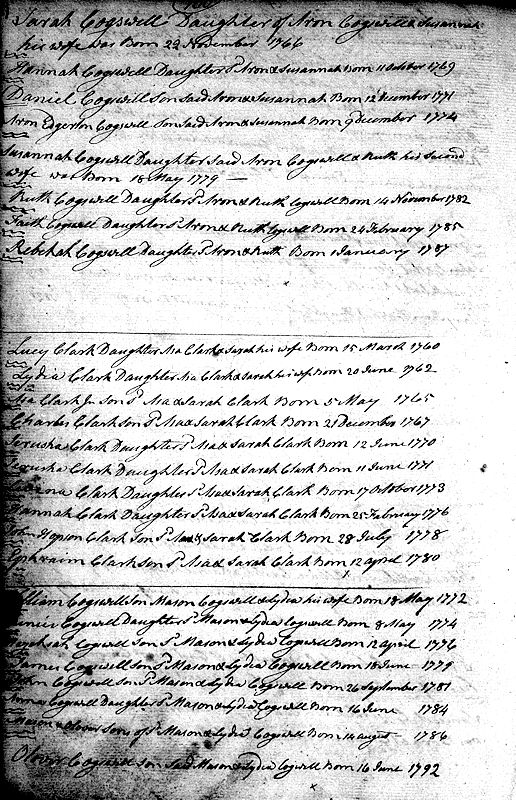 Sarah Cogswell Daughter of Aron Cogswell & Susannah
his wife was Born 22 November 1766
Hannah Cogswell Daughter Sd Aron & Susannah Born 11 October 1769
Daniel Cogswell Son Said Aron & Susannah Born 12 December 1771
Aron Edgerton Cogswell Son Said Aron & Susannah Born 9 December 1774
Susannah Cogswell Daughter Said Aron Cogswell & Ruth his Second
Wife was Born 18 May 1779
Ruth Cogswell Daughter Sd Aron & Ruth Cogswell Born 14 November 1782
Faith Cogswell Daughter Sd Aron & Ruth Cogswell Born 24 February 1785
Rebekah Cogswell Daughter Sd Aron & Ruth Born 1 January 1787
Lucy Clark Daughter Asa Clark & Sarah his wife Born 15 March 1760
Lydia Clark Daughter Asa Clark & Sarah his wife Born 20 June 1762
Asa Clark Jr Son Sd Asa & Sarah Clark Born 5 May 1765
Charles Clark Son Sd Asa & Sarah Clark Born 21 December 1767
Jerusha Clark Daughter Sd Asa & Sarah Clark Born 12 June 1770
Jerusha Clark Daughter Sd Asa & Sarah Clark Born 11 June 1771
Clark Daughter Sd Asa & Sarah Clark Born 17 October 1773
Hannah Clark Daughter Sd Asa & Sarah Clark Born 25 February 1776
John Hopson Clark Son Sd Asa & Sarah Clark Born 28 July 1778
Ephraim Clark Son Sd Asa & Sarah Clark Born 12 april 1780
William Cogswell Son Mason Cogswell & Lydia his wife Born 18 May 1772
Cogswell Daughter Sd Mason & Lydia Cogswell Born 8 May 1774
Cogswell Son Sd Mason & Lydia Cogswell Born 12 april 1776
James Cogswell Son Sd Mason & Lydia Cogswell Born 18 June 1779
John Cogswell Son Sd Mason & Lydia Cogswell Born 26 September 1781
Cogswell Daughter Sd Mason & Lydia Cogswell Born 16 June 1784
Mason & Oliver Sons of Sd Mason & Lydia Cogswell Born 14 august 1786
Oliver Cogswell Son Said Mason & Lydia Cogswell Born 16 June 1792